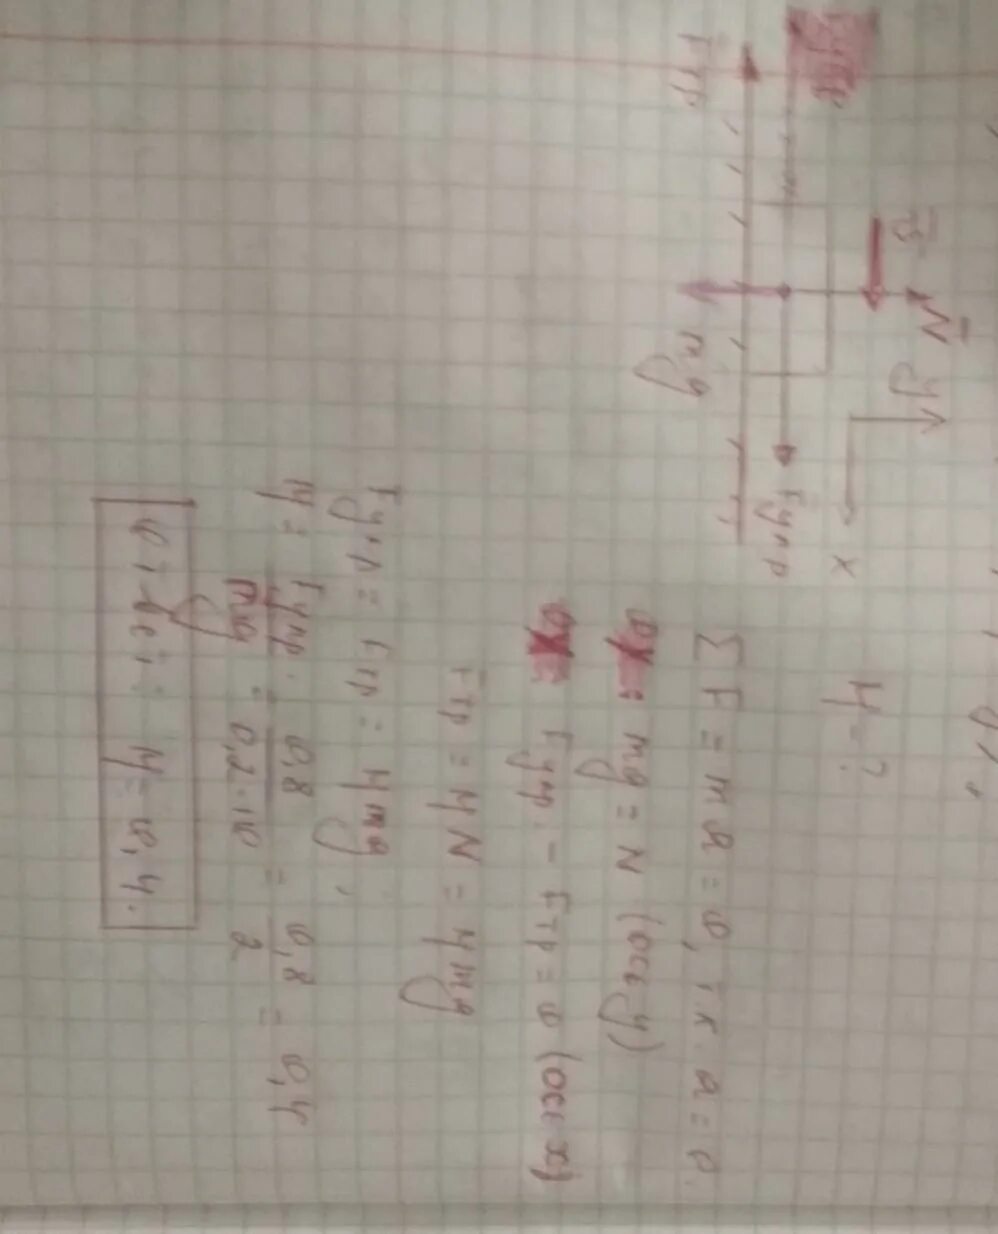 N
y
x
Fтр
mg
Fупр
μ-?
ΣF = ma = 0, т.к. a = 0.
mg = N (ось y)
Fупр - Fтр = 0 (ось x)
Fтр = μN = μmg
Fупр = Fтр = μmg
μ = Fупр / mg = 0,8 / 0,2·10 = 0,8 / 2 = 0,4
Ответ: μ = 0,4.